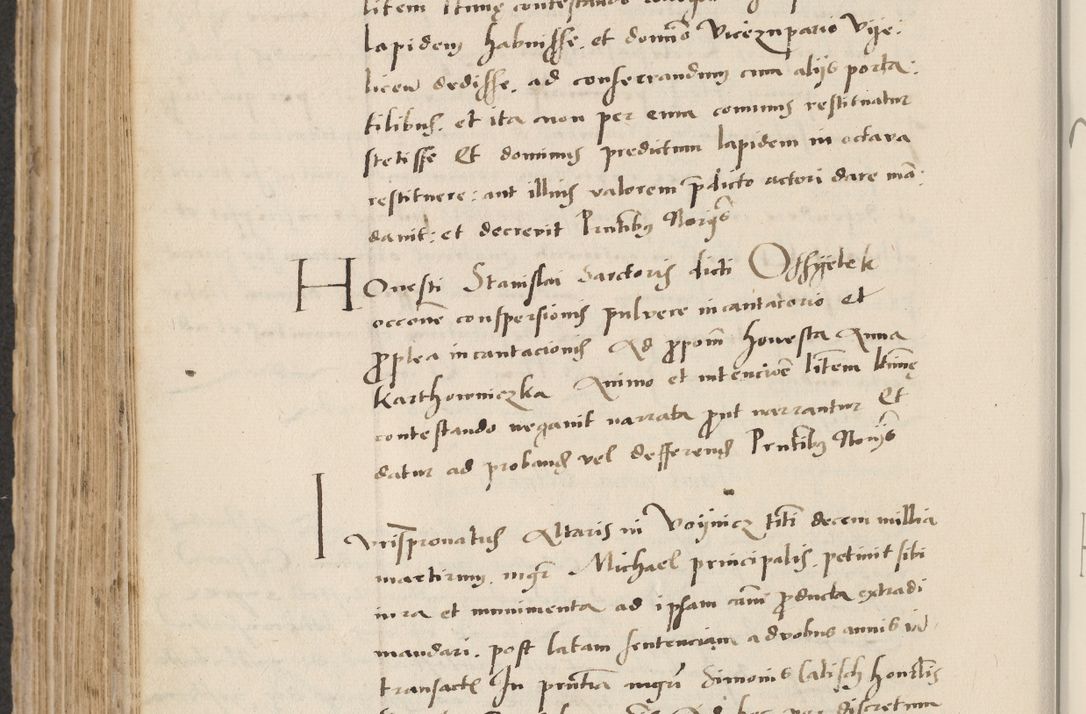 lapidem habuisse. et domino Vicezupario Vije.
liceñ dedisse. ad conferrandum cum alijs porta:
tilibus. et ita non per eum comunis restituatur
stetisse Et dominus predictum lapidem in octava
restituere: aut illius valorem p̄dicto actori dare mā:
davit: et decrevit Pn̄tibus Norijs
HOnesti Stanislai Sartoris dicti Ossyetek
occōne conspersionis pulvere incantatorio et
p̄ptea incantacionis Ad p̄pom̄ honesta Anna
Karthowniczka Animo et intencioē litem ltīme
contestando negavit narrata put narrantur Et
datur ad proband vel defferend Pn̄tibus Norijs
Iurispronatus Altaris in Voijnicz titi decem millia
martirum. mgr̄ Michael principalis. petiuit sibi
iura et munimenta ad ipsam cām producta extradi
mandari. post latam sentenciam a duobus annis iā
transact In pn̄tia mgri Simonis latisch